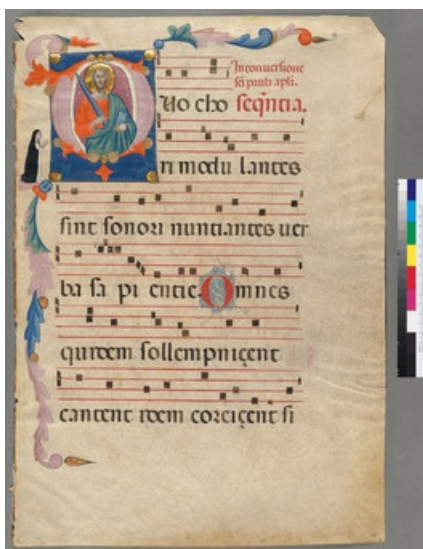 In conuersione
sci pauli apli.
QUo cho seqntia.
ri modu lantes
sint sonori nuntiantes uer
ba sa pi entie. Omnes
quidem sollempniçent
cantent idem si